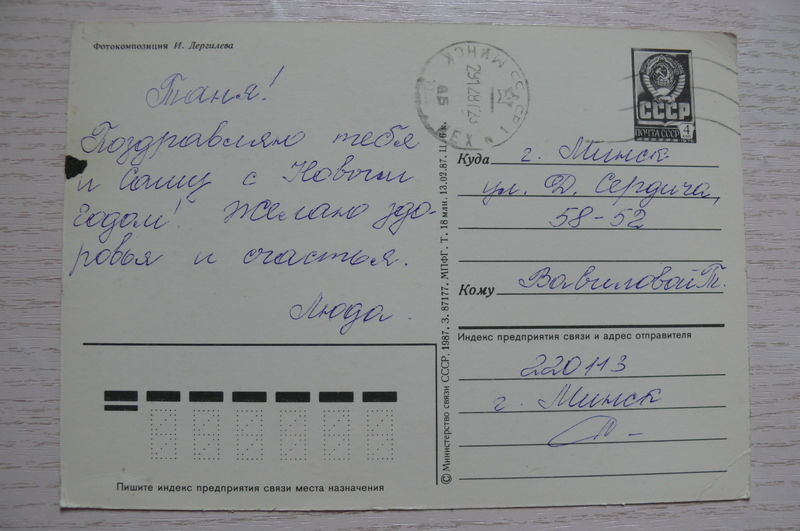 Фотокомпозиция И. Дергилева
Таня!
Поздравляю тебя
и Сашу с Новым
годом! Желаю здо-
ровья и счастья.
Люда.
Пишите индекс предприятия связи места назначения
© Министерство связи СССР, 1987. З. 87177. МПФГ. Т. 18 млн. 13.02.87. 11/6 к.
СССР
МИНСК
СССР
ПОЧТА СССР
4
Куда г. Минск
ул. Д. Сердича,
58-52
Кому Вавиловой Т.
Индекс предприятия связи и адрес отправителя
220113
г. Минск